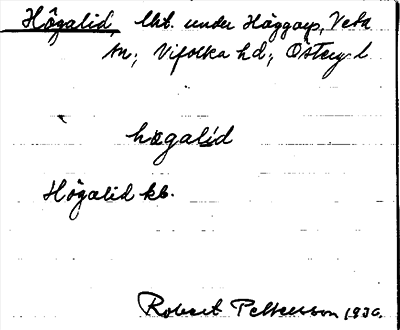 Högalid, lht. under Häggarp, Veta
sn; Vifolka hd; Österg. l
høgalid
Högalid kb.
Robert Pettersson 1930.